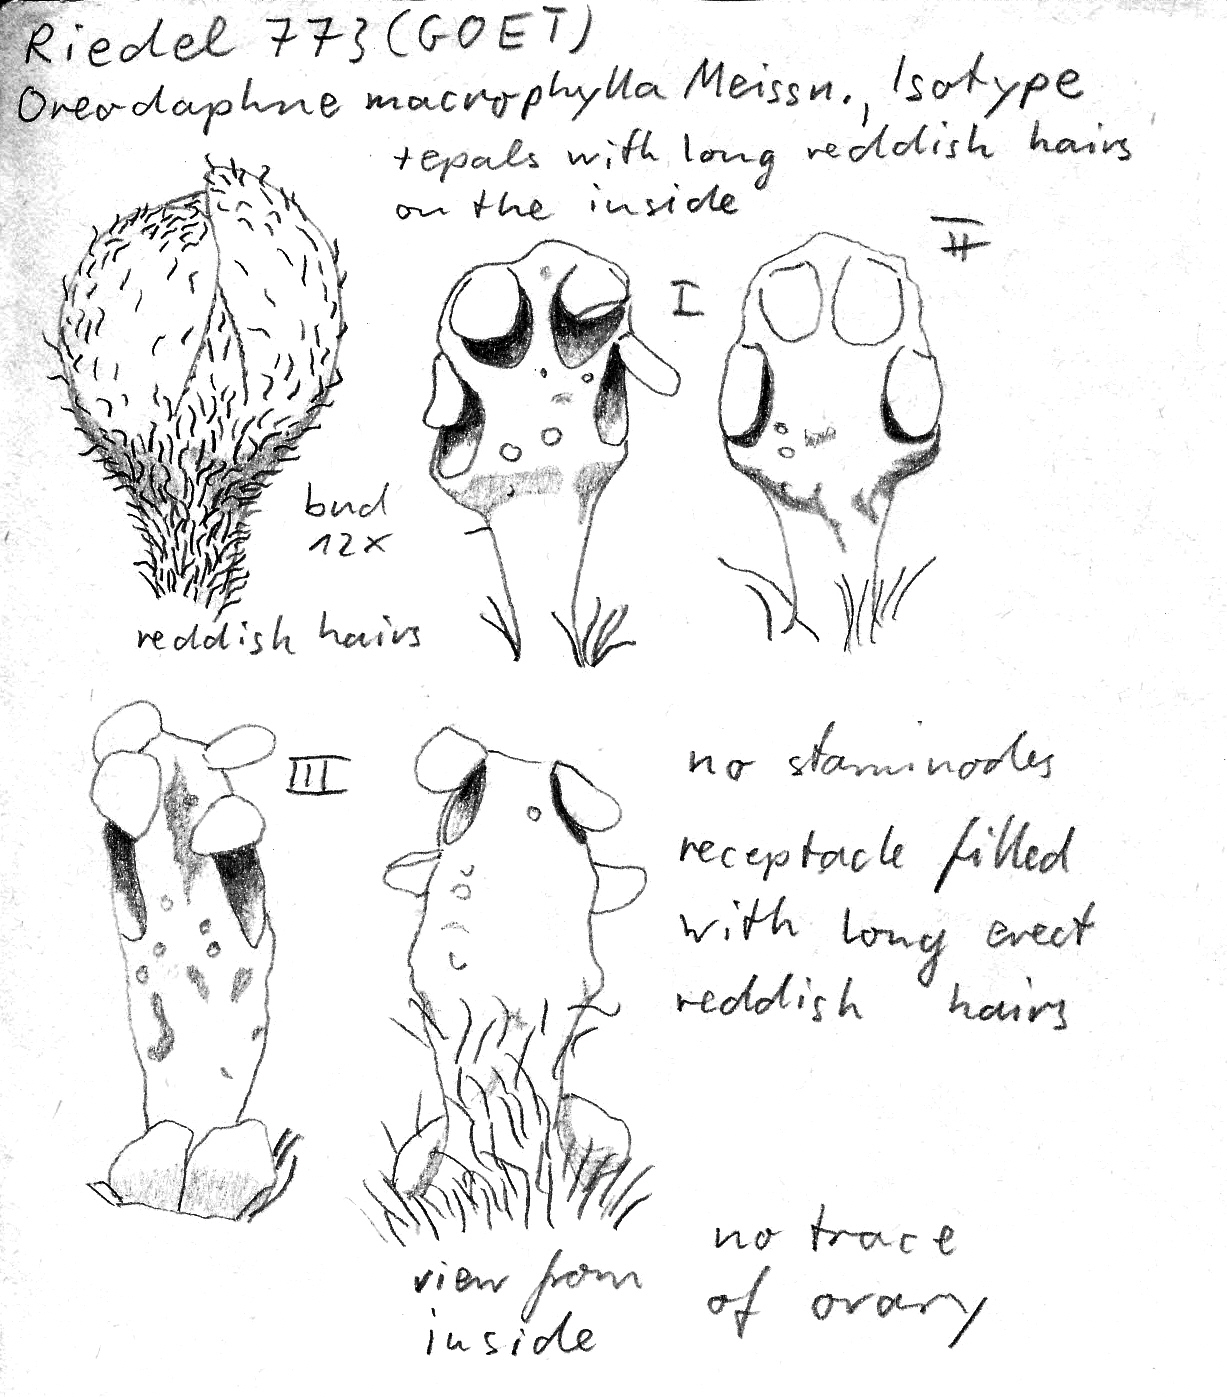 Riedel 773 (GOET)
Oreodaphne macrophylla Meissn., Isotype
tepals with long reddish hairs
on the inside
I
II
bud
12x
reddish hairs
III
no staminodes
receptacle filled
with long erect
reddish hairs
view from
inside
no trace
of ovary